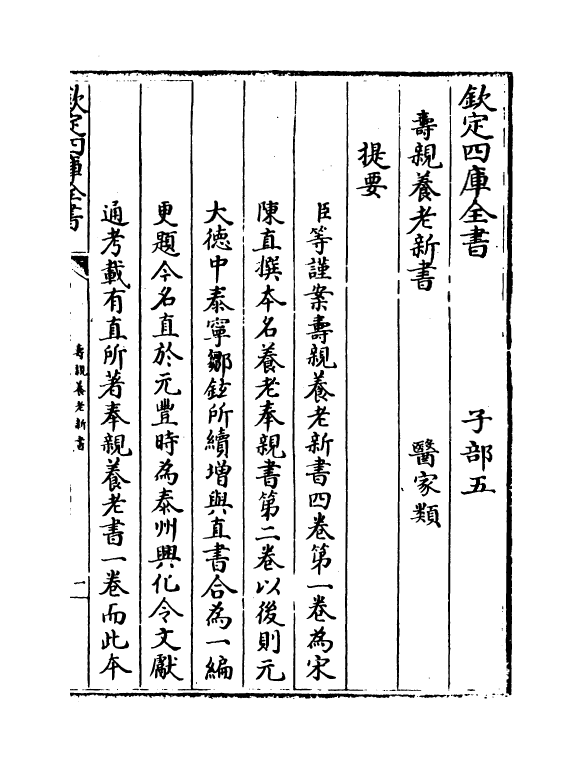 欽定四庫全書 子部五
壽親養老新書 醫家類
提要
臣等謹案壽親養老新書四卷第一卷為宋
陳直撰本名養老奉親書第二卷以後則元
大德中泰寧鄒鋐所續增與直書合為一編
更題今名直於元豐時為泰州興化令文獻
通考載有直所著奉親養老書一卷而此本
欽定四庫全書
壽親養老新書